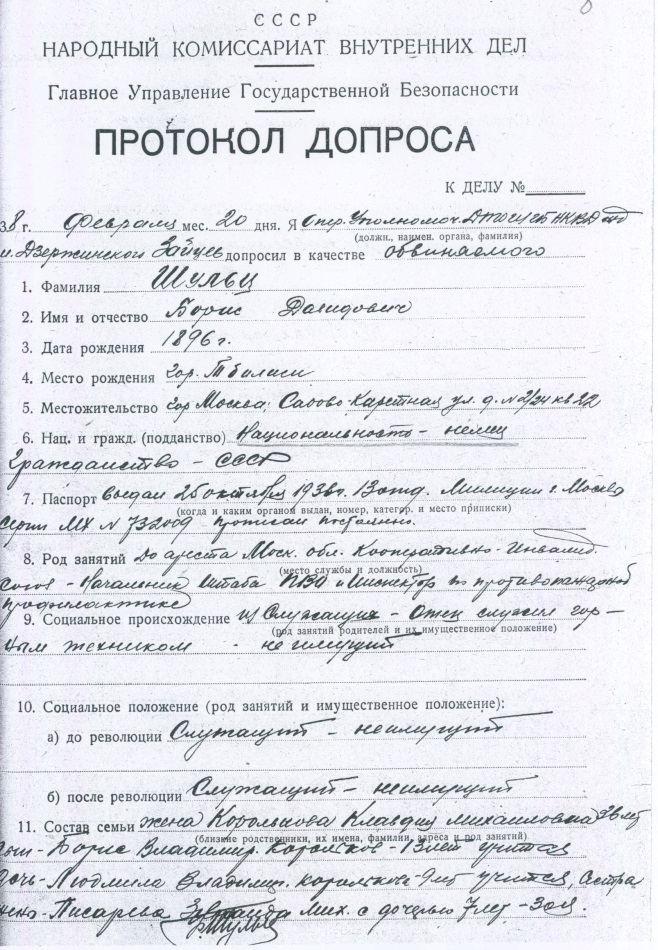 СССР
НАРОДНЫЙ КОМИССАРИАТ ВНУТРЕННИХ ДЕЛ
Главное Управление Государственной Безопасности
ПРОТОКОЛ ДОПРОСА
К ДЕЛУ №
38 г. Февраля мес. 20 дня. Я Опер. Уполномоч.
(должн., наимен. органа, фамилия)
Зайцев допросил в качестве обвиняемого
1. Фамилия Шульц
2. Имя и отчество Борис Давидович
3. Дата рождения 1896 г.
4. Место рождения гор. Тбилиси
5. Местожительство гор Москва, Садово Каретная ул. д. № 2/24 кв 22
6. Нац. и гражд. (подданство) Национальность – немец
Гражданство – СССР
7. Паспорт выдан 25 октября 1936г. 13 отд. Милиции г. Москва
(когда и каким органом выдан, номер, категор. и место приписки)
серии МХ № 732009 прописан постоянно.
8. Род занятий До ареста Моск. обл. Кооперативно-Инвалид.
(место службы и должность)
союз – Начальник Штаба ПВО и Инспектор по противопожарной
профилактике
9. Социальное происхождение из Служащих – Отец служил гор–
(род занятий родителей и их имущественное положение)
ным техником – неимущий
10. Социальное положение (род занятий и имущественное положение):
а) до революции Служащий – неимущий
б) после революции Служащий – неимущий
11. Состав семьи жена Королькова Клавдия Михайловна 38 лет
(близкие родственники, их имена, фамилии, адреса и род занятий)
сын – Борис Владимир. Корольков – 13 лет учится
дочь – Людмила Владимир. Королькова – 9 лет учится, Сестра
жены – Писарева Мих. с дочерью 7 лет – Зоя.
Шульц